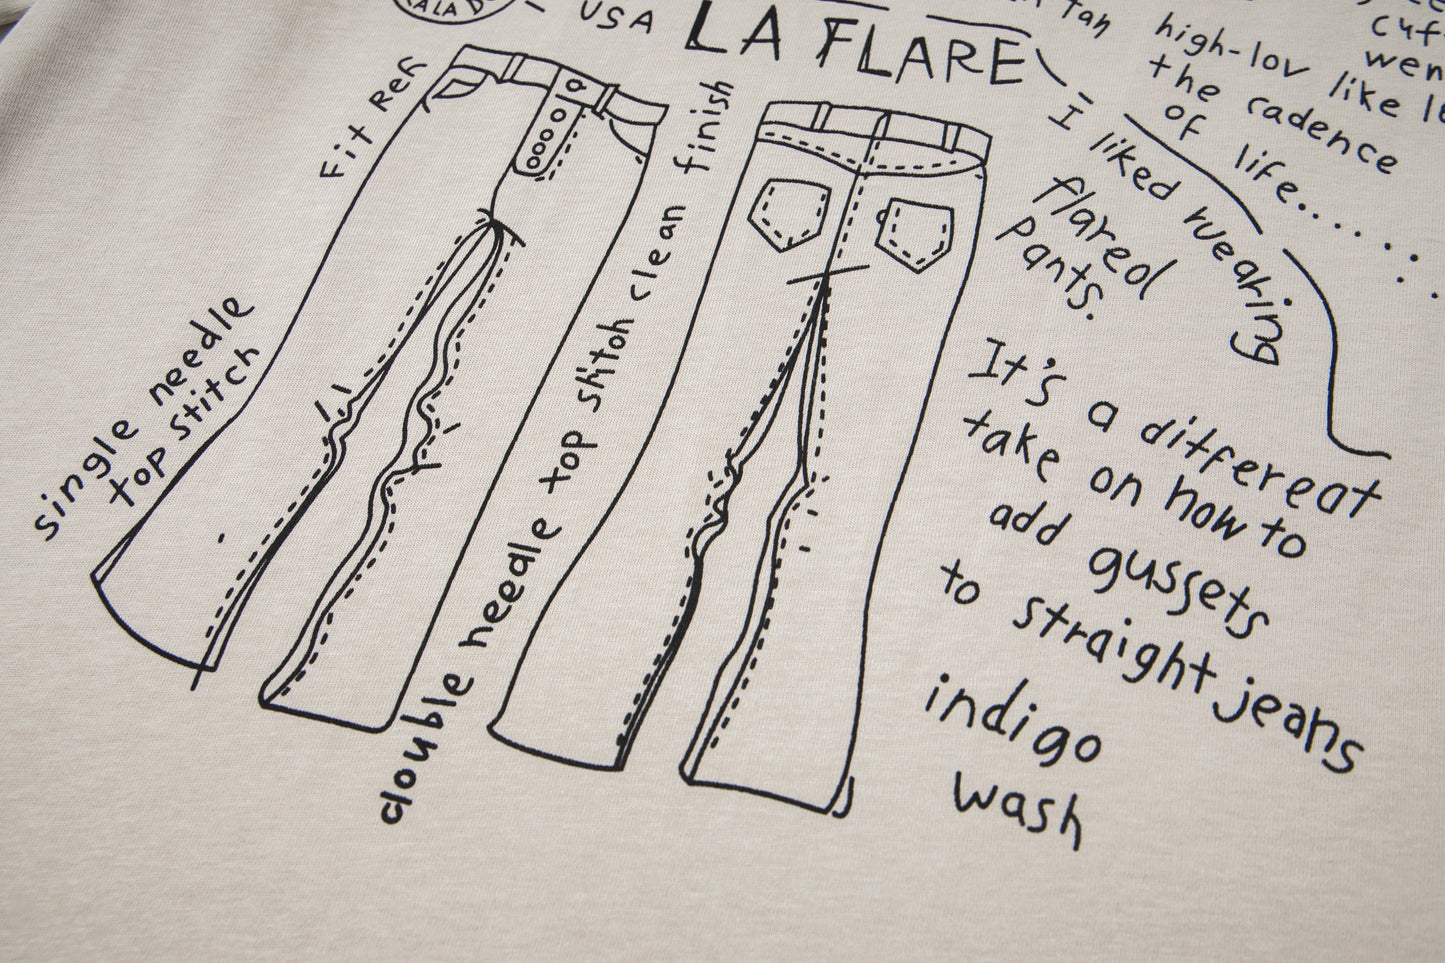 USA
LA FLARE
high-lov like
the cadence
of life......
I liked wearing
flared
pants.
Fit Ref
single needle
top stitch
double needle top stitch clean finish
It's a different
take on how to
add gussets
to straight jeans
indigo
wash